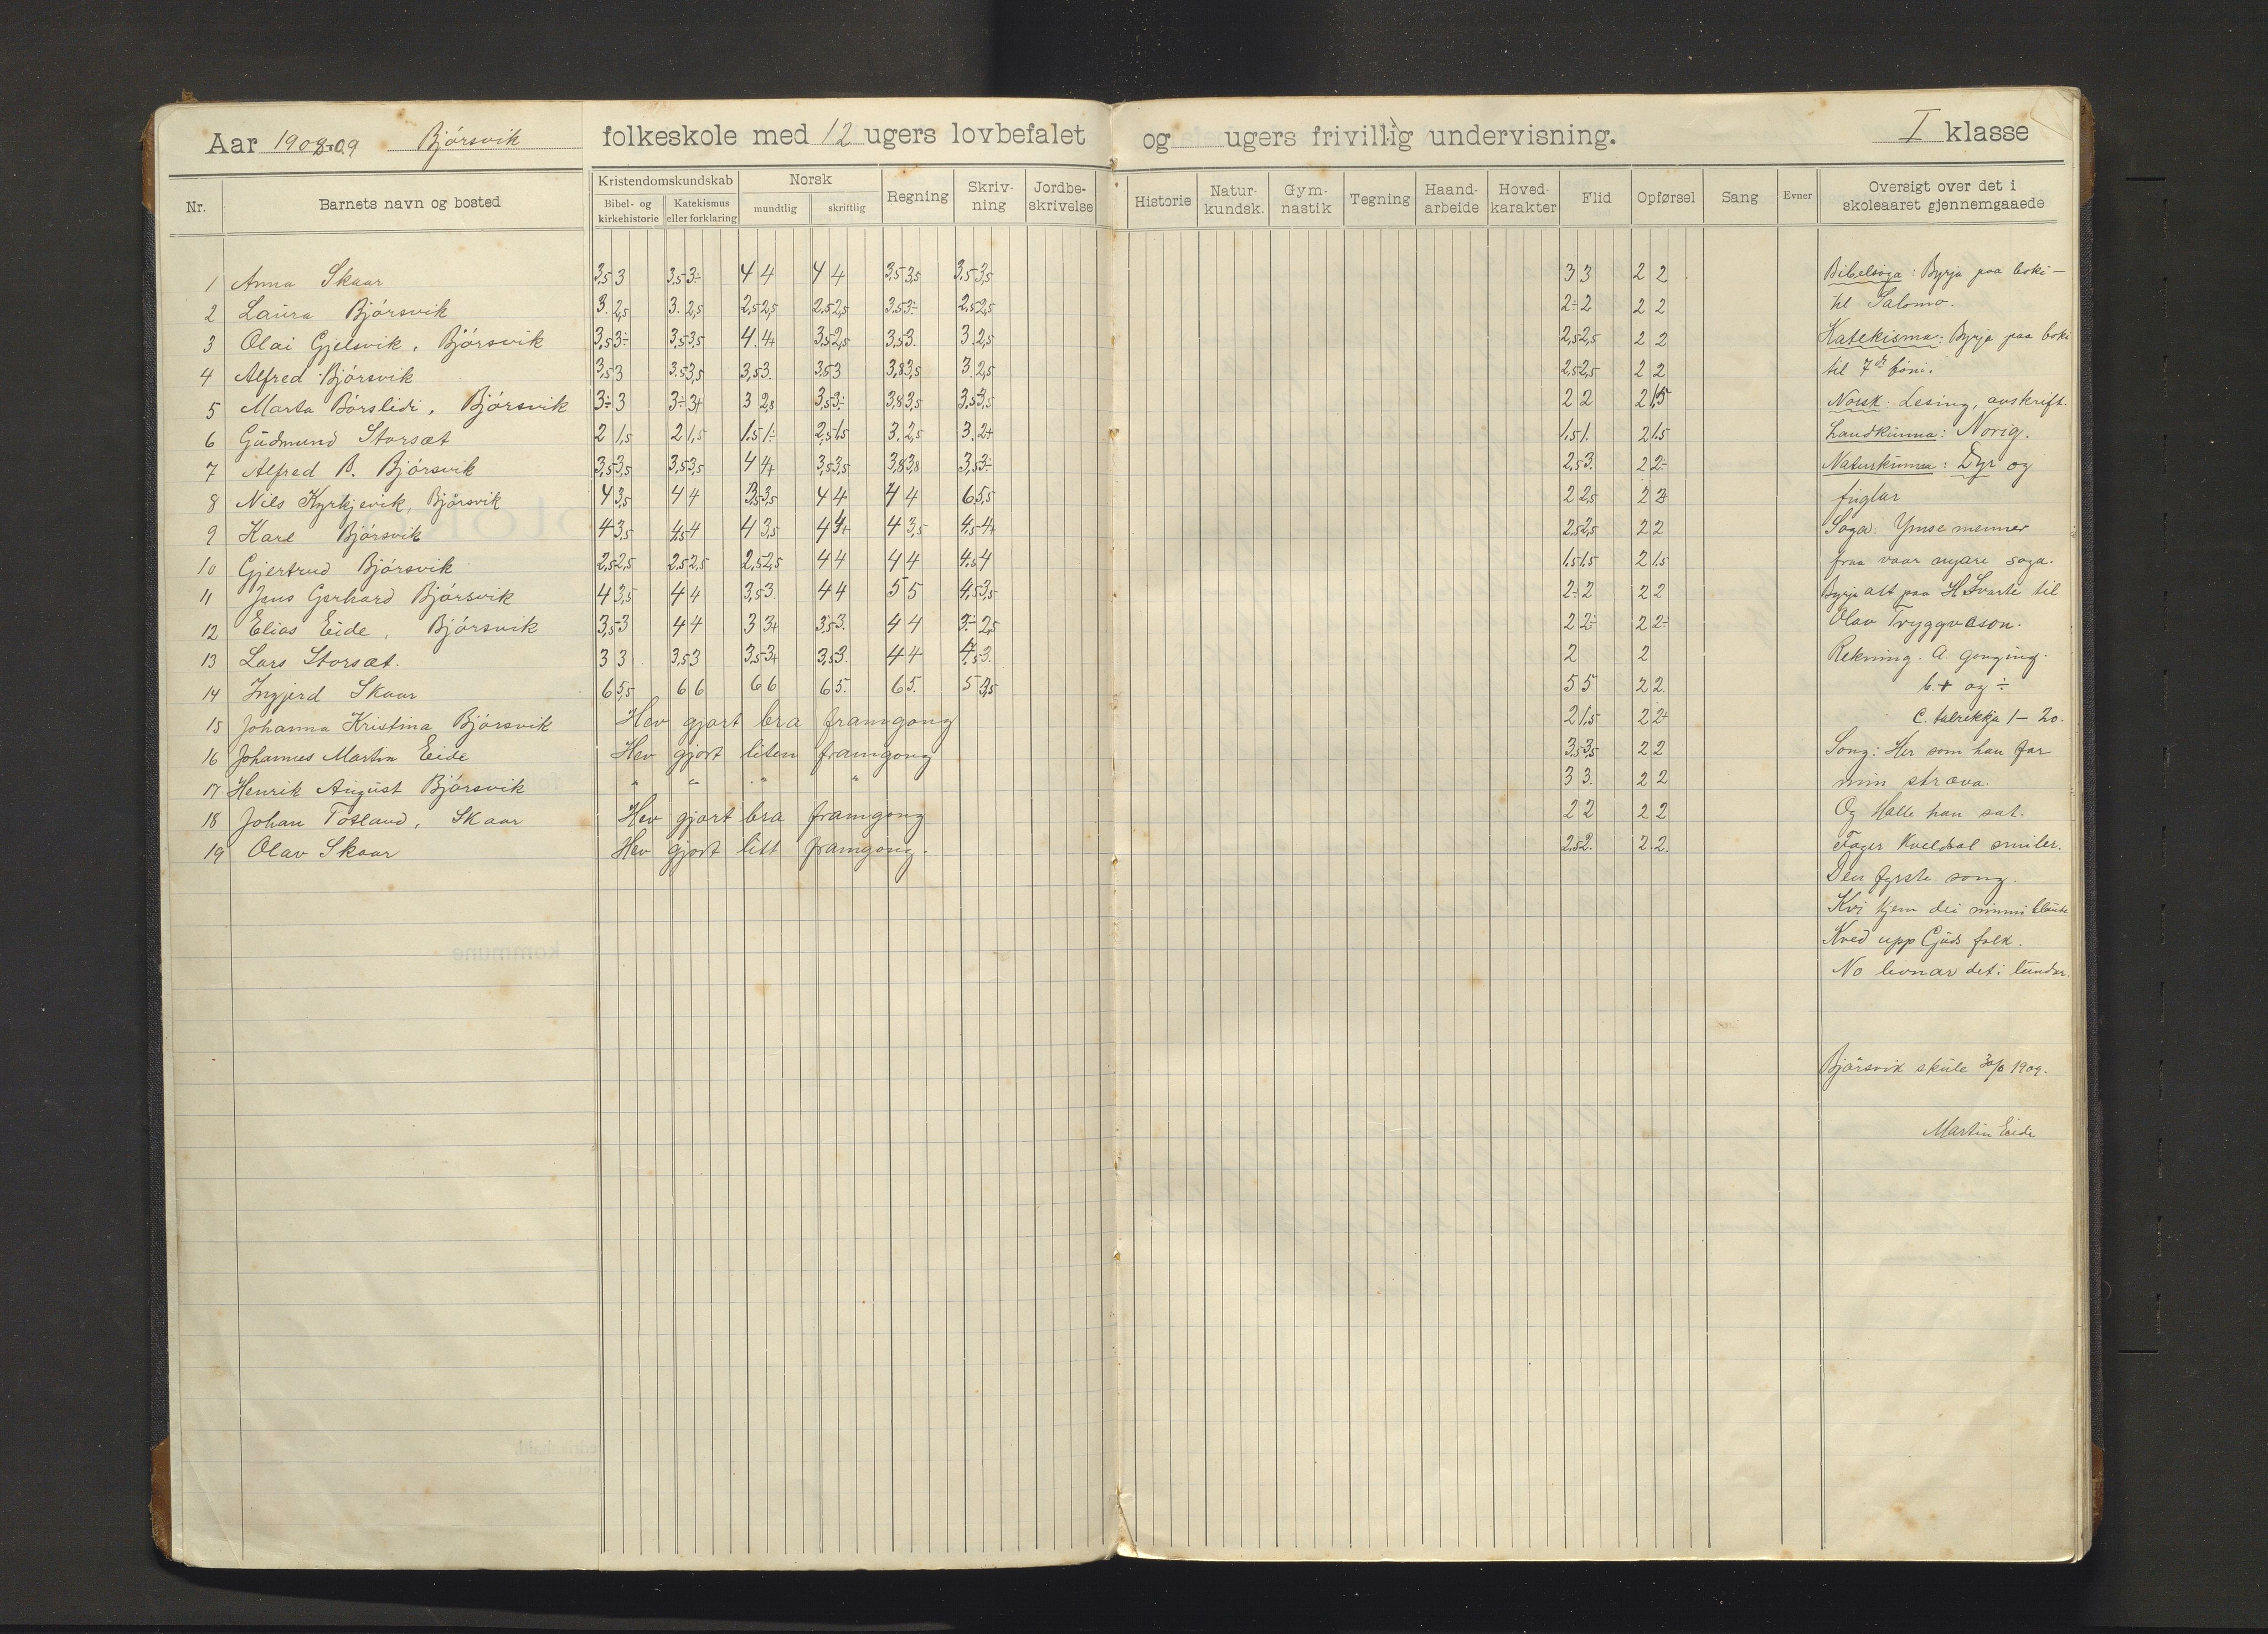 Aar 1908-09 Bjórsvik folkeskole med 12 ugers lovbefalet og ugers frivillig undervisning. I klasse
Nr. Barnets navn og bosted Kristendomskundskab Norsk Regning Skriv-ning Jordbe-skrivelse Historie Natur-kundsk. Gym-nastik Tegning Haand-arbeide Hoved-karakter Flid Opførsel Sang Evner Oversigt over det i skoleaaret gjennemgaaede
Bibel- og kirkehistorie Katekismus eller forklaring mundtlig skriftlig
1 Anna Skaar 3,5 3 3,5 3÷ 4 4 4 4 3,5 3,5 3,5 3,5 3 3 2 2
2 Laura Bjórsvik 3. 2,5 3. 2,5 2,5 2,5 2,5 2,5 3,5 3÷ 2,5 2,5 2÷ 2 2 2
3 Olai Gjelsvik, Bjórsvik 3,5 3÷ 3,5 3,5 4. 4+ 3,5 2,5 3,5 3. 3. 2,5 2,5 2,5 2 2
4 Alfred Bjórsvik 3,5 3 3,5 3,5 3,5 3. 3,5 3 3,8 3,5 3. 2,5 2,5 2,5 2 2
5 Marta Bórslidi, Bjórsvik 3÷ 3 3÷ 3+ 3 2,8 3,5 3÷ 3,8 3,5 3,5 3,5 2 2 2 1,5
6 Gudmund Storsæt 2 1,5 2 1,5 1.5 1÷ 2,5 1,5 3. 2,5 3. 2+ 1,5 1. 2 1.5
7 Alfred B. Bjórsvik 3,5 3,5 3,5 3,5 4 4+ 3,5 3,5 3,8 3,8 3,5 3÷ 2,5 3. 2 2÷
8 Nils Kyrkjevik, Bjórsvik 4 3,5 4 4 3,5 3,5 4 4 4 4 6 5,5 2 2,5 2 2
9 Karl Bjórsvik 4 3,5 4,5 4 4 3,5 4 4+ 4 3,5 4,5 4+ 2,5 2,5 2 2
10 Gjertrud Bjórsvik 2,5 2,5 2,5 2,5 2,5 2,5 4 4 4 4 4,5 4 1,5 1,5 2 1.5
11 Jens Gerhard Bjórsvik 4 3,5 4 4 3,5 3 4 4 5 5 4,5 3,5 2÷ 2 2 2
12 Elias Eide, Bjórsvik 3,5 3 4 4 3 3+ 3,5 3. 4 4 3÷ 2,5 2 2÷ 2 2÷
13 Lars Storsæt. 3 3 3,5 3 3,5 3+ 3,5 3. 4 4 4,5 3. 2 2
14 Ingjerd Skaar 6 5,5 6 6 6 6 6 5. 6 5. 5 3,5 5 5 2 2
15 Johanna Kristina Bjórsvik Hev gjort bra framgong 2 1,5 2 2+
16 Johannes Martin Eide Hev gjort liten framgong 3,5 3,5 2 2
17 Henrik August Bjórsvik " " " " 3 3. 2 2
18 Johan Tótland, Skaar Hev gjort bra framgong 2 2 2 2
19 Olav Skaar Hev gjort litt framgong. 2,5 2. 2 2.
Bibelsoga: Byrja paa boki —
til Salomo.
Katekisma: Byrja paa boki
til 7de bøni.
Norsk: Lesing, avskrift.
Landkunna: Norig.
Naturkunna: Dyr og
fuglar
Soga: Ymse menner
fraa vaar soga.
Byrja att paa H. Svarte til
Olav Tryggvason.
Rekning. a. gonging.
b. + og ÷
c. talrekkja 1 — 20.
Song: Her som han far
min stræva.
Og Halle han sat.
Fager kveldsol smiler.
Den fyrste song.
Kvi kjem dei minni
Kved upp Guds folk.
No livnar det i lundar.
Bjórsvik skule 30/6 1909.
Martin Eide